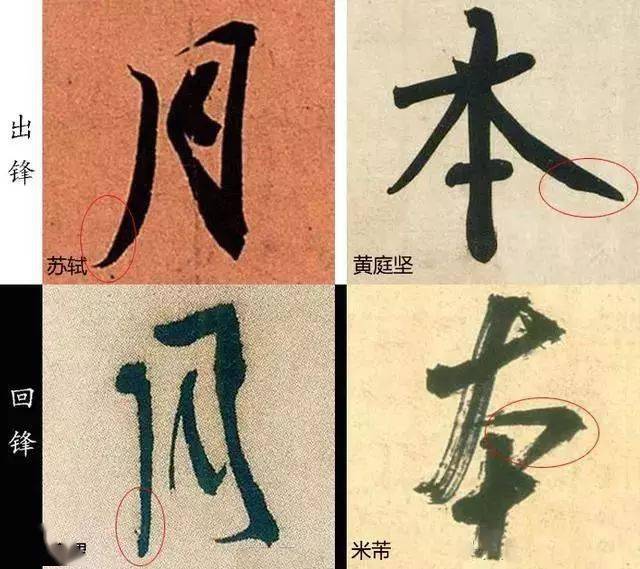 出锋
月
苏轼
本
黄庭坚
回锋
月
本
米芾